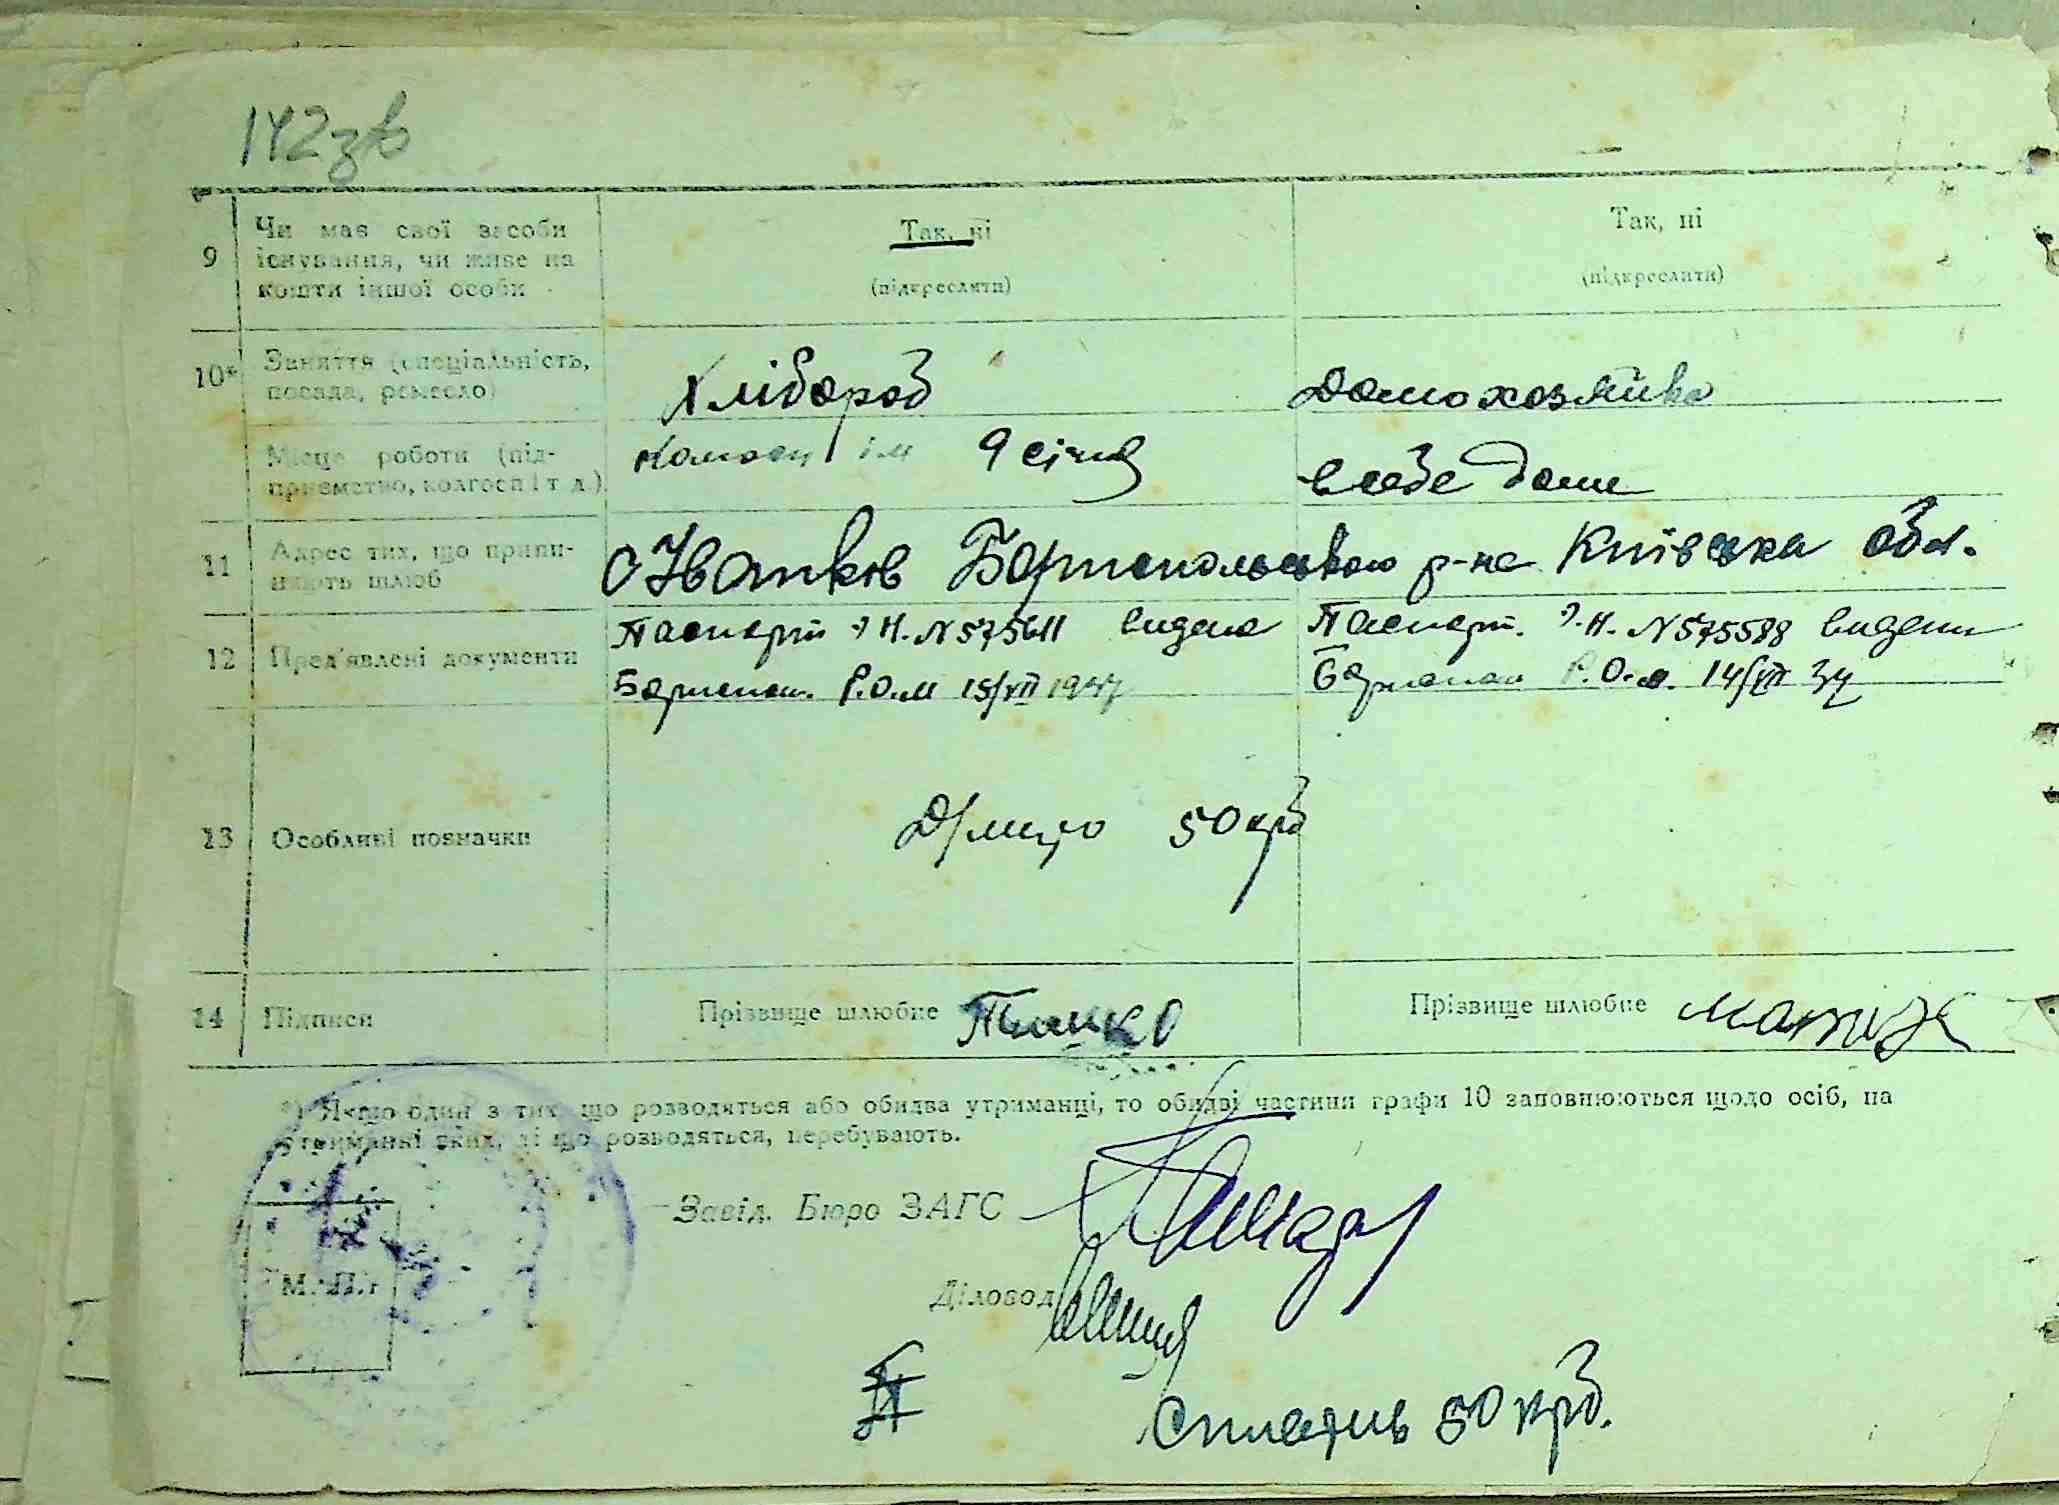 142зв
9 Чи має свої засоби існування, чи живе на кошти іншої особи
Так, ні
(підкреслити)
Так, ні
(підкреслити)
10* Заняття (спеціальність, посада, ремесло)
Хлібороб
Домохозяйка
Місце роботи (підприємство, колгосп і т. д.)
ім 9 січня
в себе дома
11 Адрес тих, що припиняють шлюб
с Іванків Бориспольського р-на Київська обл.
12 Пред'явлені документи
Паспорт Н. N 575611 видано
Бориспол. Р.О.М 15/VII 1937
Паспорт. Н. N 575588 видани
Бориспол Р.О.М. 14/VII 34
13 Особливі позначки
50 крб
14 Підписи
Прізвище шлюбне
Прізвище шлюбне
*) Якщо один з тих, що розводяться або обидва утриманці, то обидві частини графи 10 заповнюються щодо осіб, на
утриманні яких, ті що розводяться, перебувають.
Завід. Бюро ЗАГС
М. П.
Діловод
50 крб.